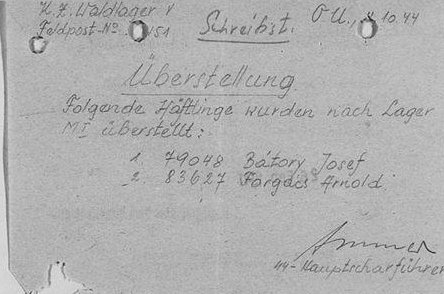 K.Z. Waldlager V
Feldpost-No. 151
Schreibst.
O.U., 10.44
Überstellung
Folgende Häftlinge wurden nach Lager
M I überstellt:
1. 79048 Bátory Josef
2. 83627 Forgács Arnold
SS-Hauptscharführer